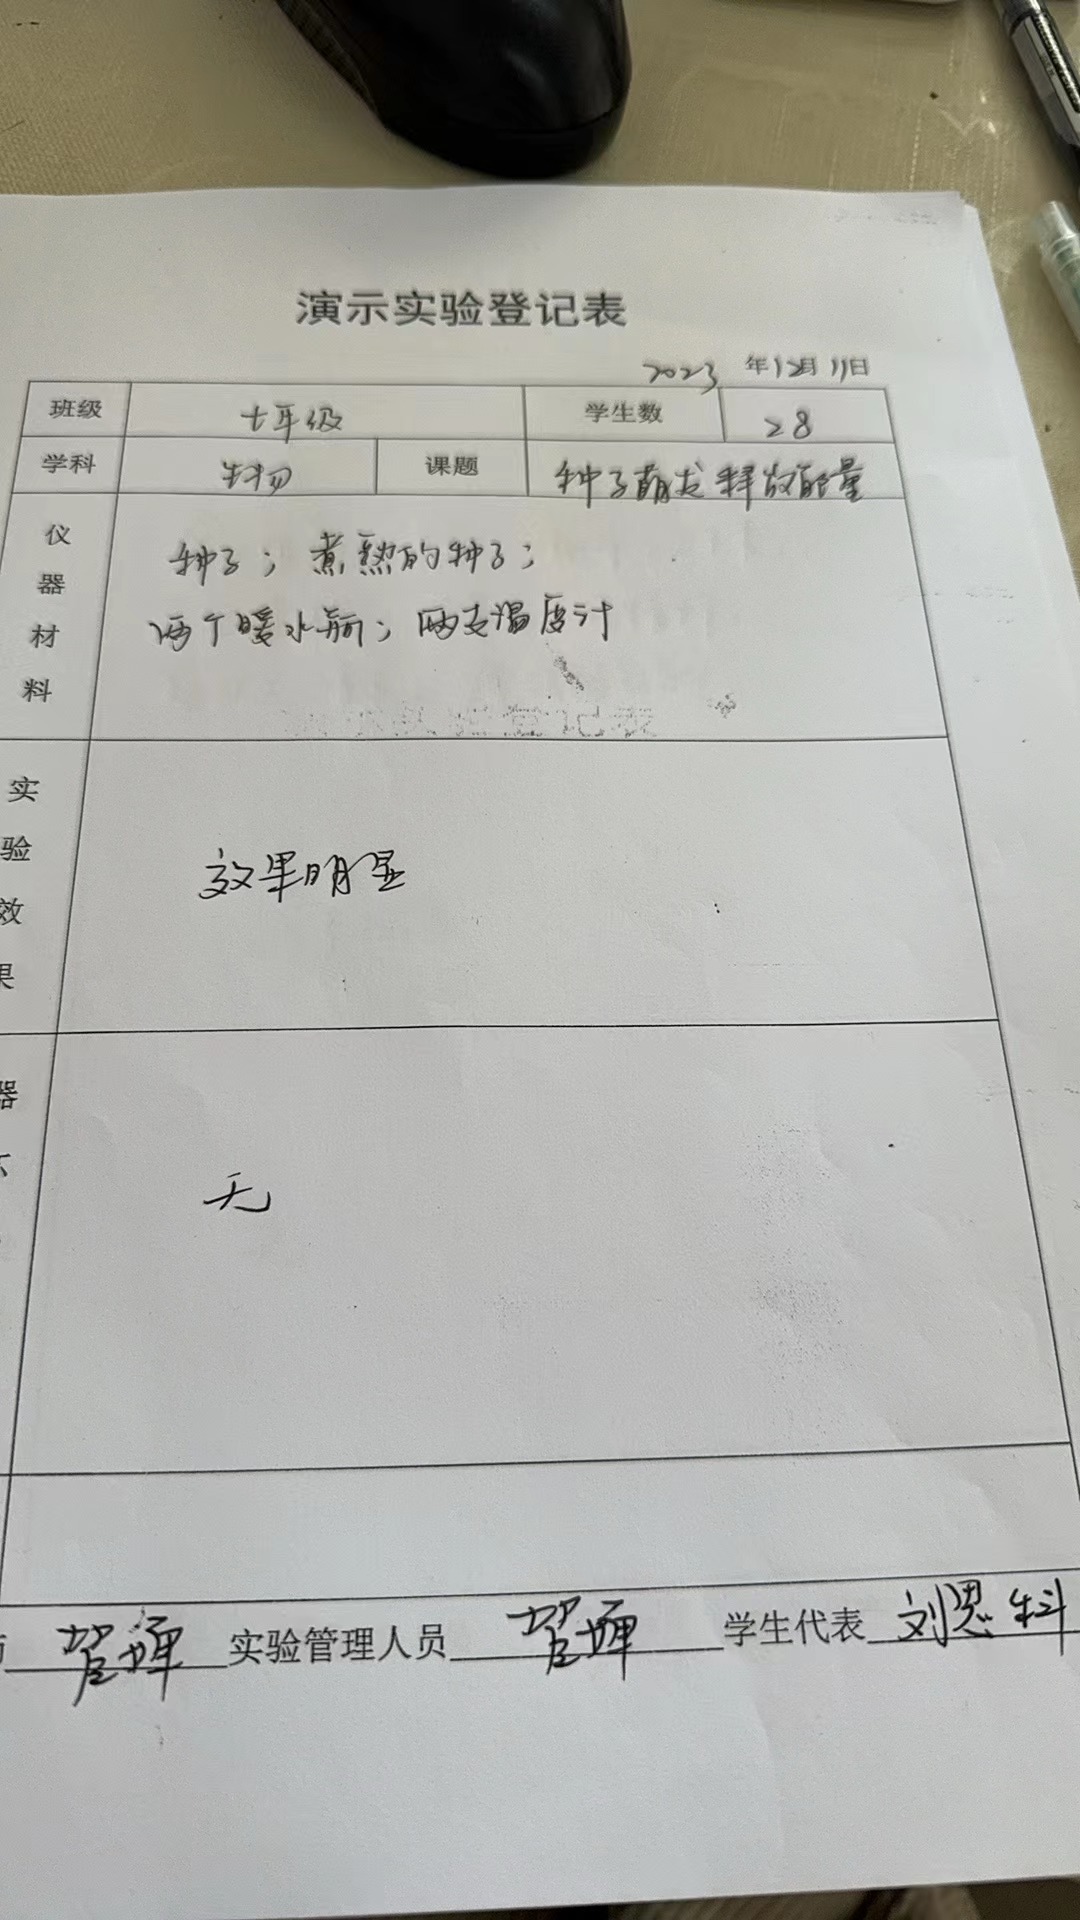 演示实验登记表
2023 年12月11日
班级 七年级 学生数 28
学科 生物 课题 种子萌发释放能量
仪器材料
种子；煮熟的种子；
两个暖水瓶；两支温度计
实验效果
效果明显
器
无
实验管理人员 学生代表 刘恩科